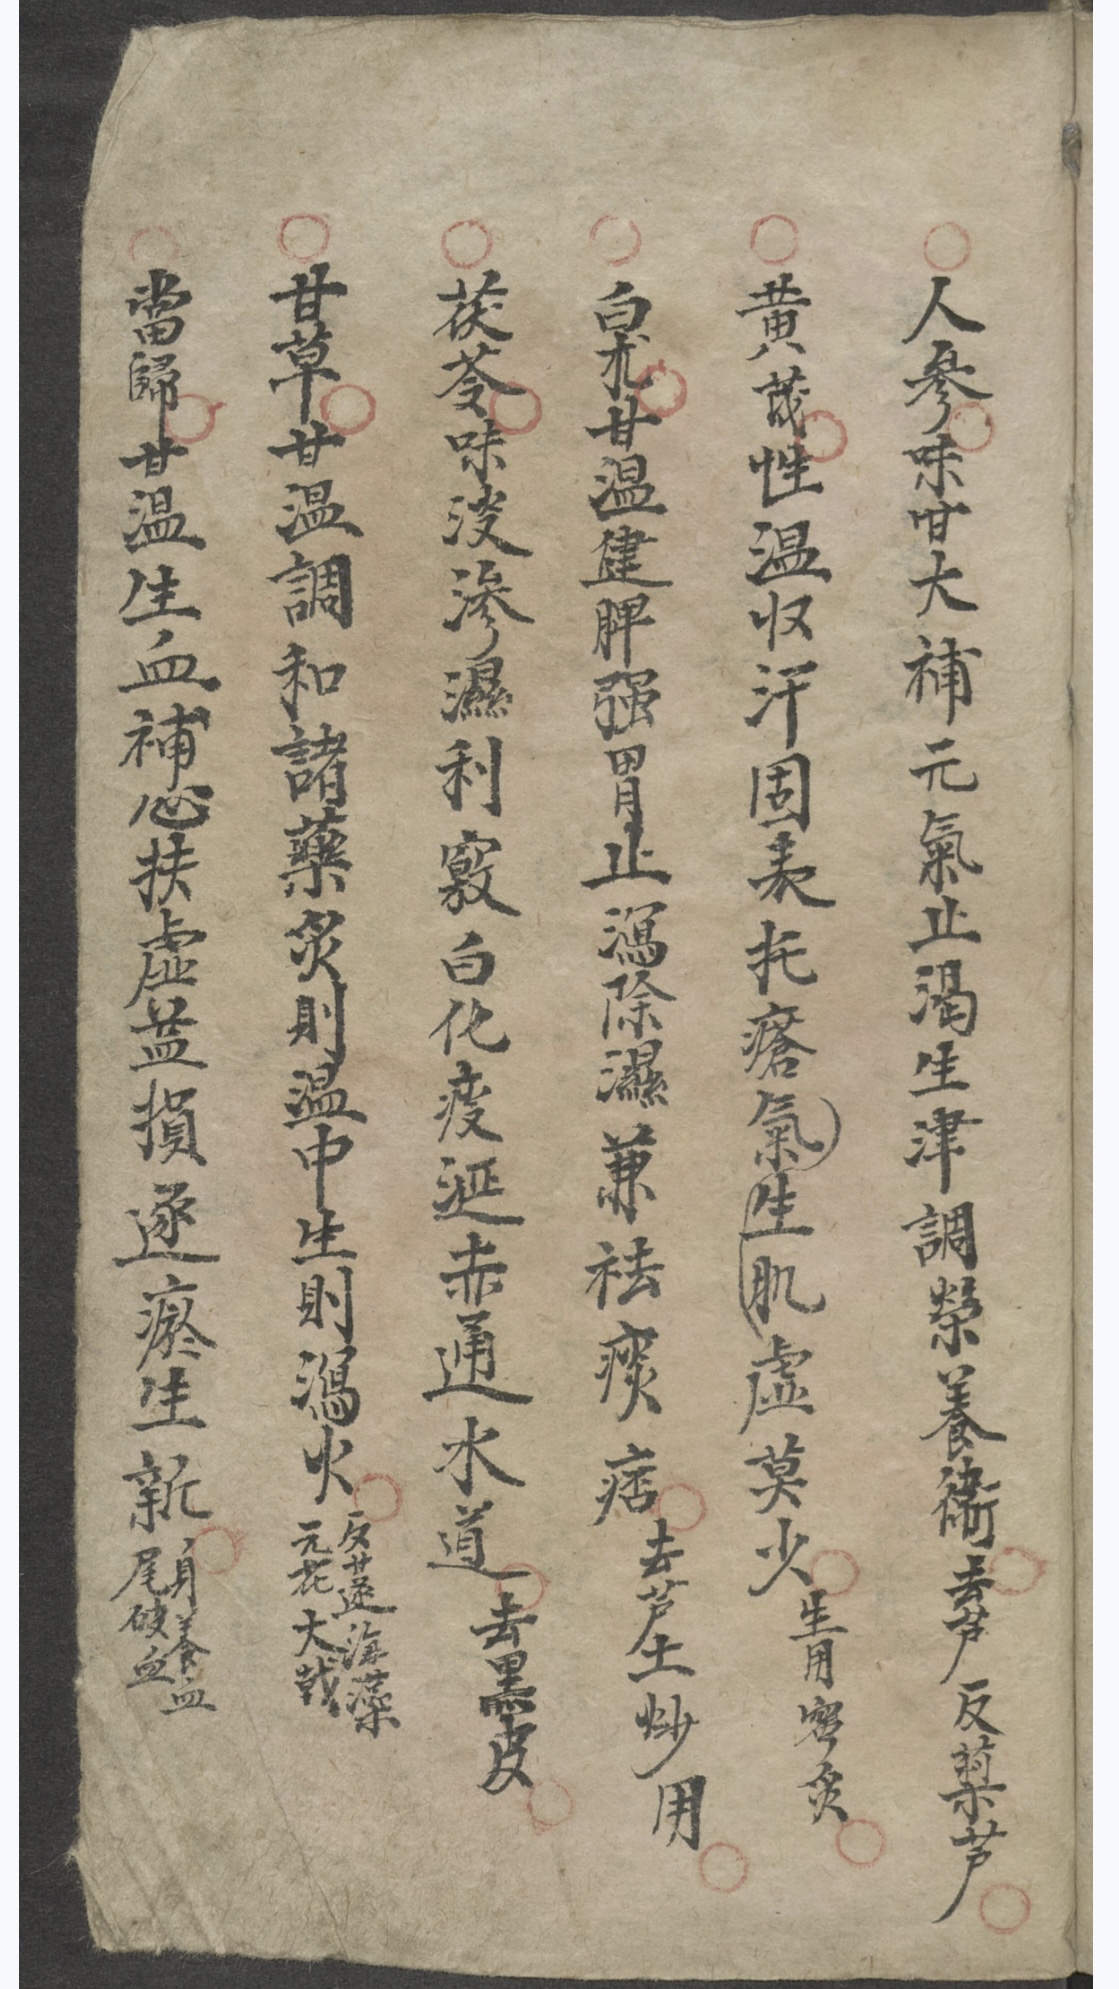 人參味甘大補元氣止渴生津調榮養衛去芦反藜芦
黄芪性温収汗固表托瘡氣生肌虚莫少生用宻炙
白朮甘温健脾强胃止瀉除濕兼祛痰痞去芦土炒用
茯苓味淡滲濕利竅白化痰涎赤通水道去黒皮
甘草甘温調和諸藥炙則温中生則瀉火反甘遂海藻
元花大戟
當歸甘温生血補心扶虚益損逐瘀生新身養血
尾破血